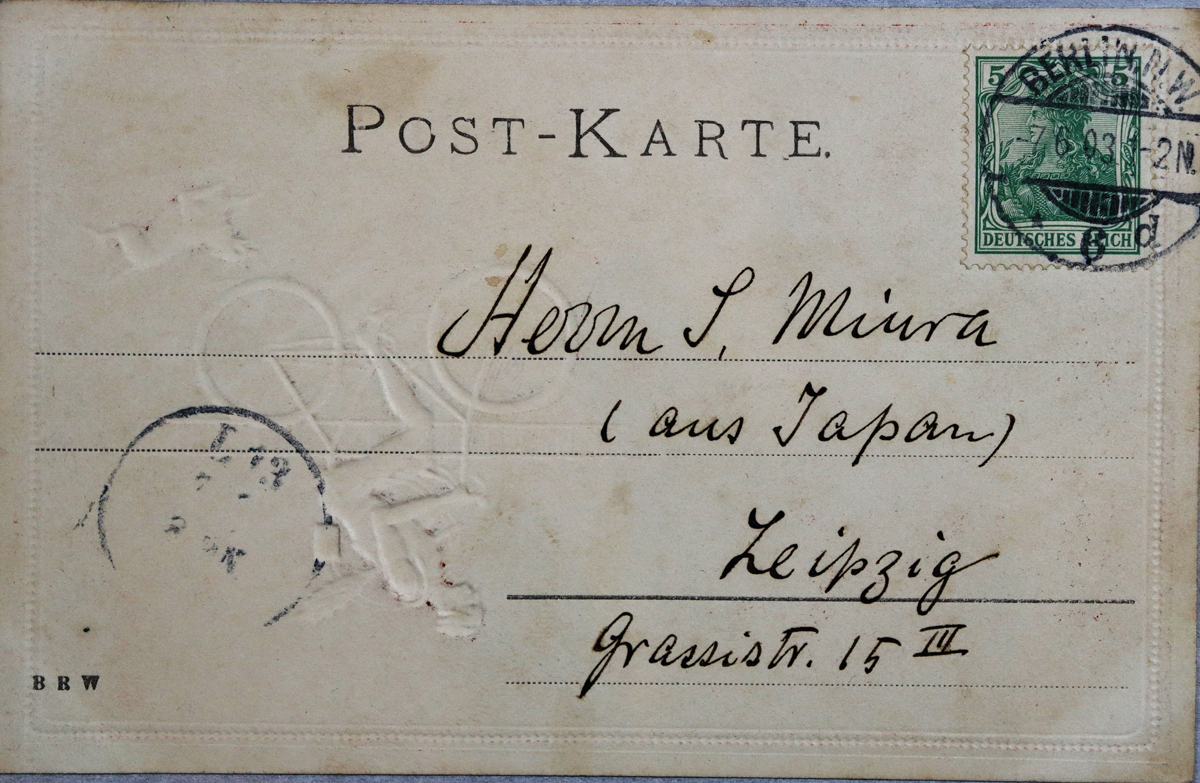 POST-KARTE.
5 5
BERLIN, N.W
-7.6.03 1-2N.
* 6 d
DEUTSCHES REICH
Herrn S. Miura
(aus Japan)
Leipzig
Grassistr. 15 III
BRW